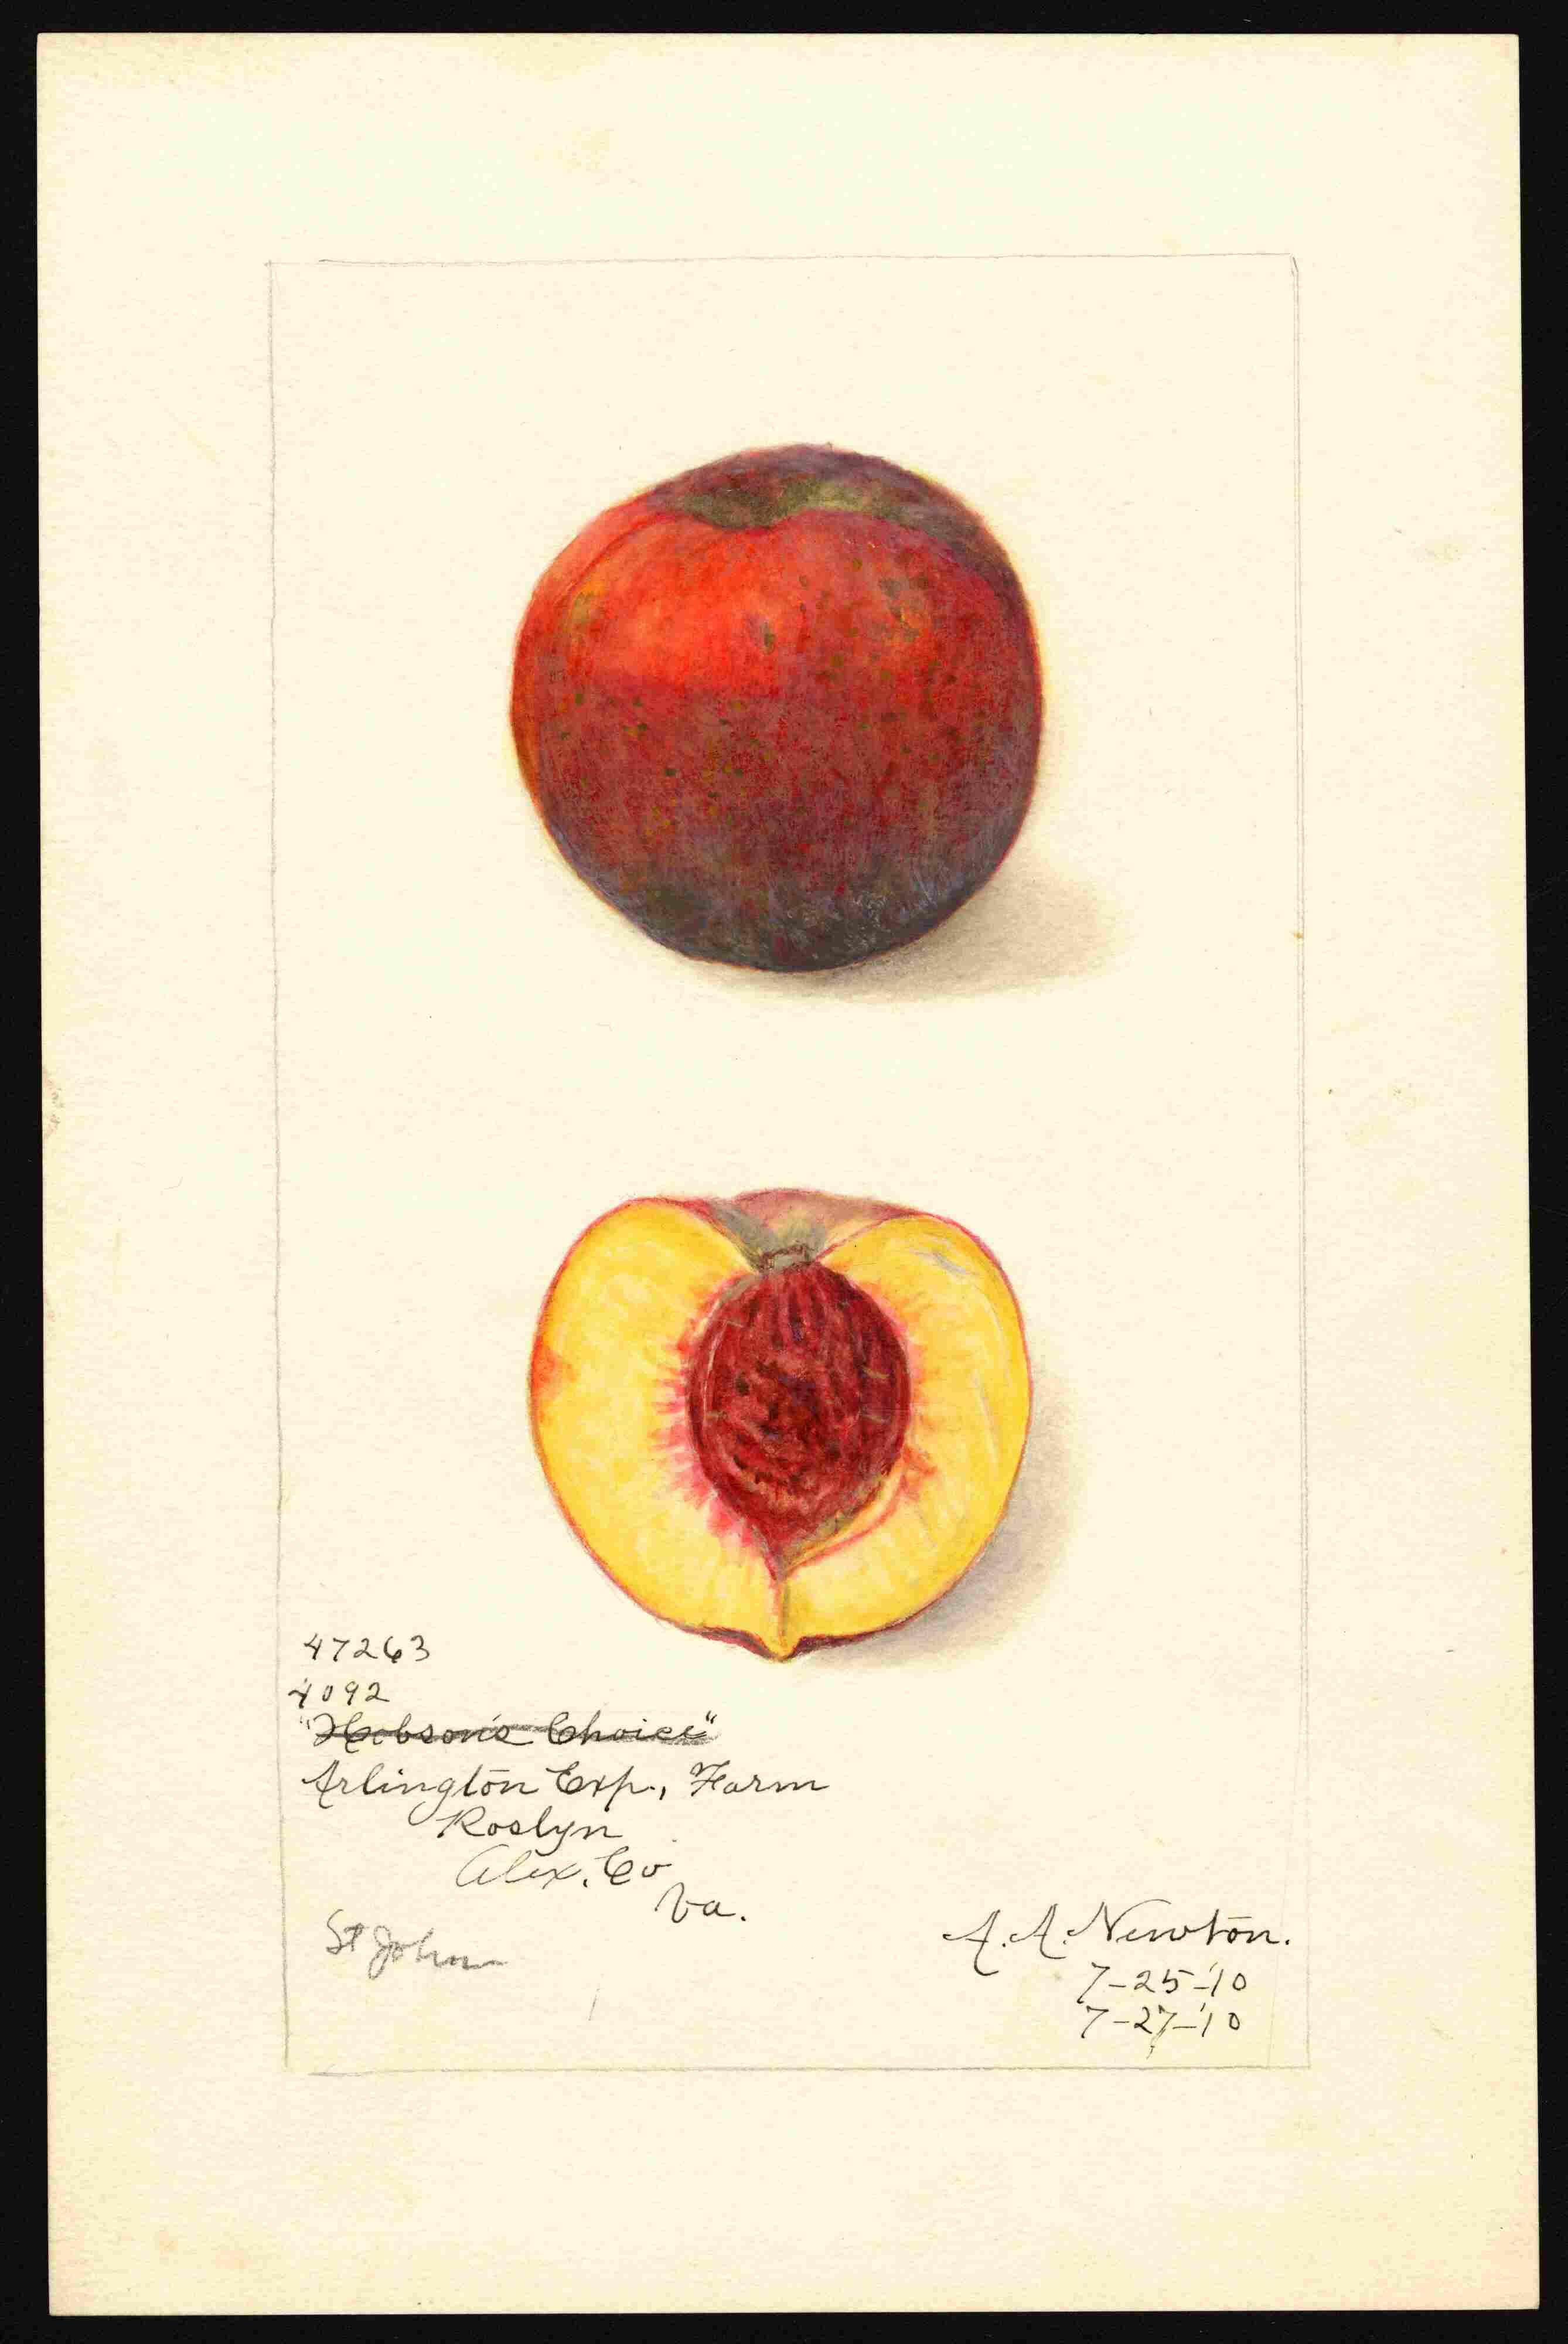 47263
4092
"Hobson's Choice"
Arlington Exp., Farm
Roslyn
Alex. Co
Va.
St John
A. A. Newton.
7-25-'10
7-27-'10